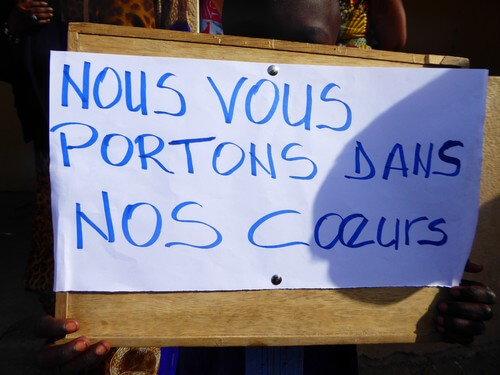 NOUS VOUS
PORTONS DANS
NOS CŒURS